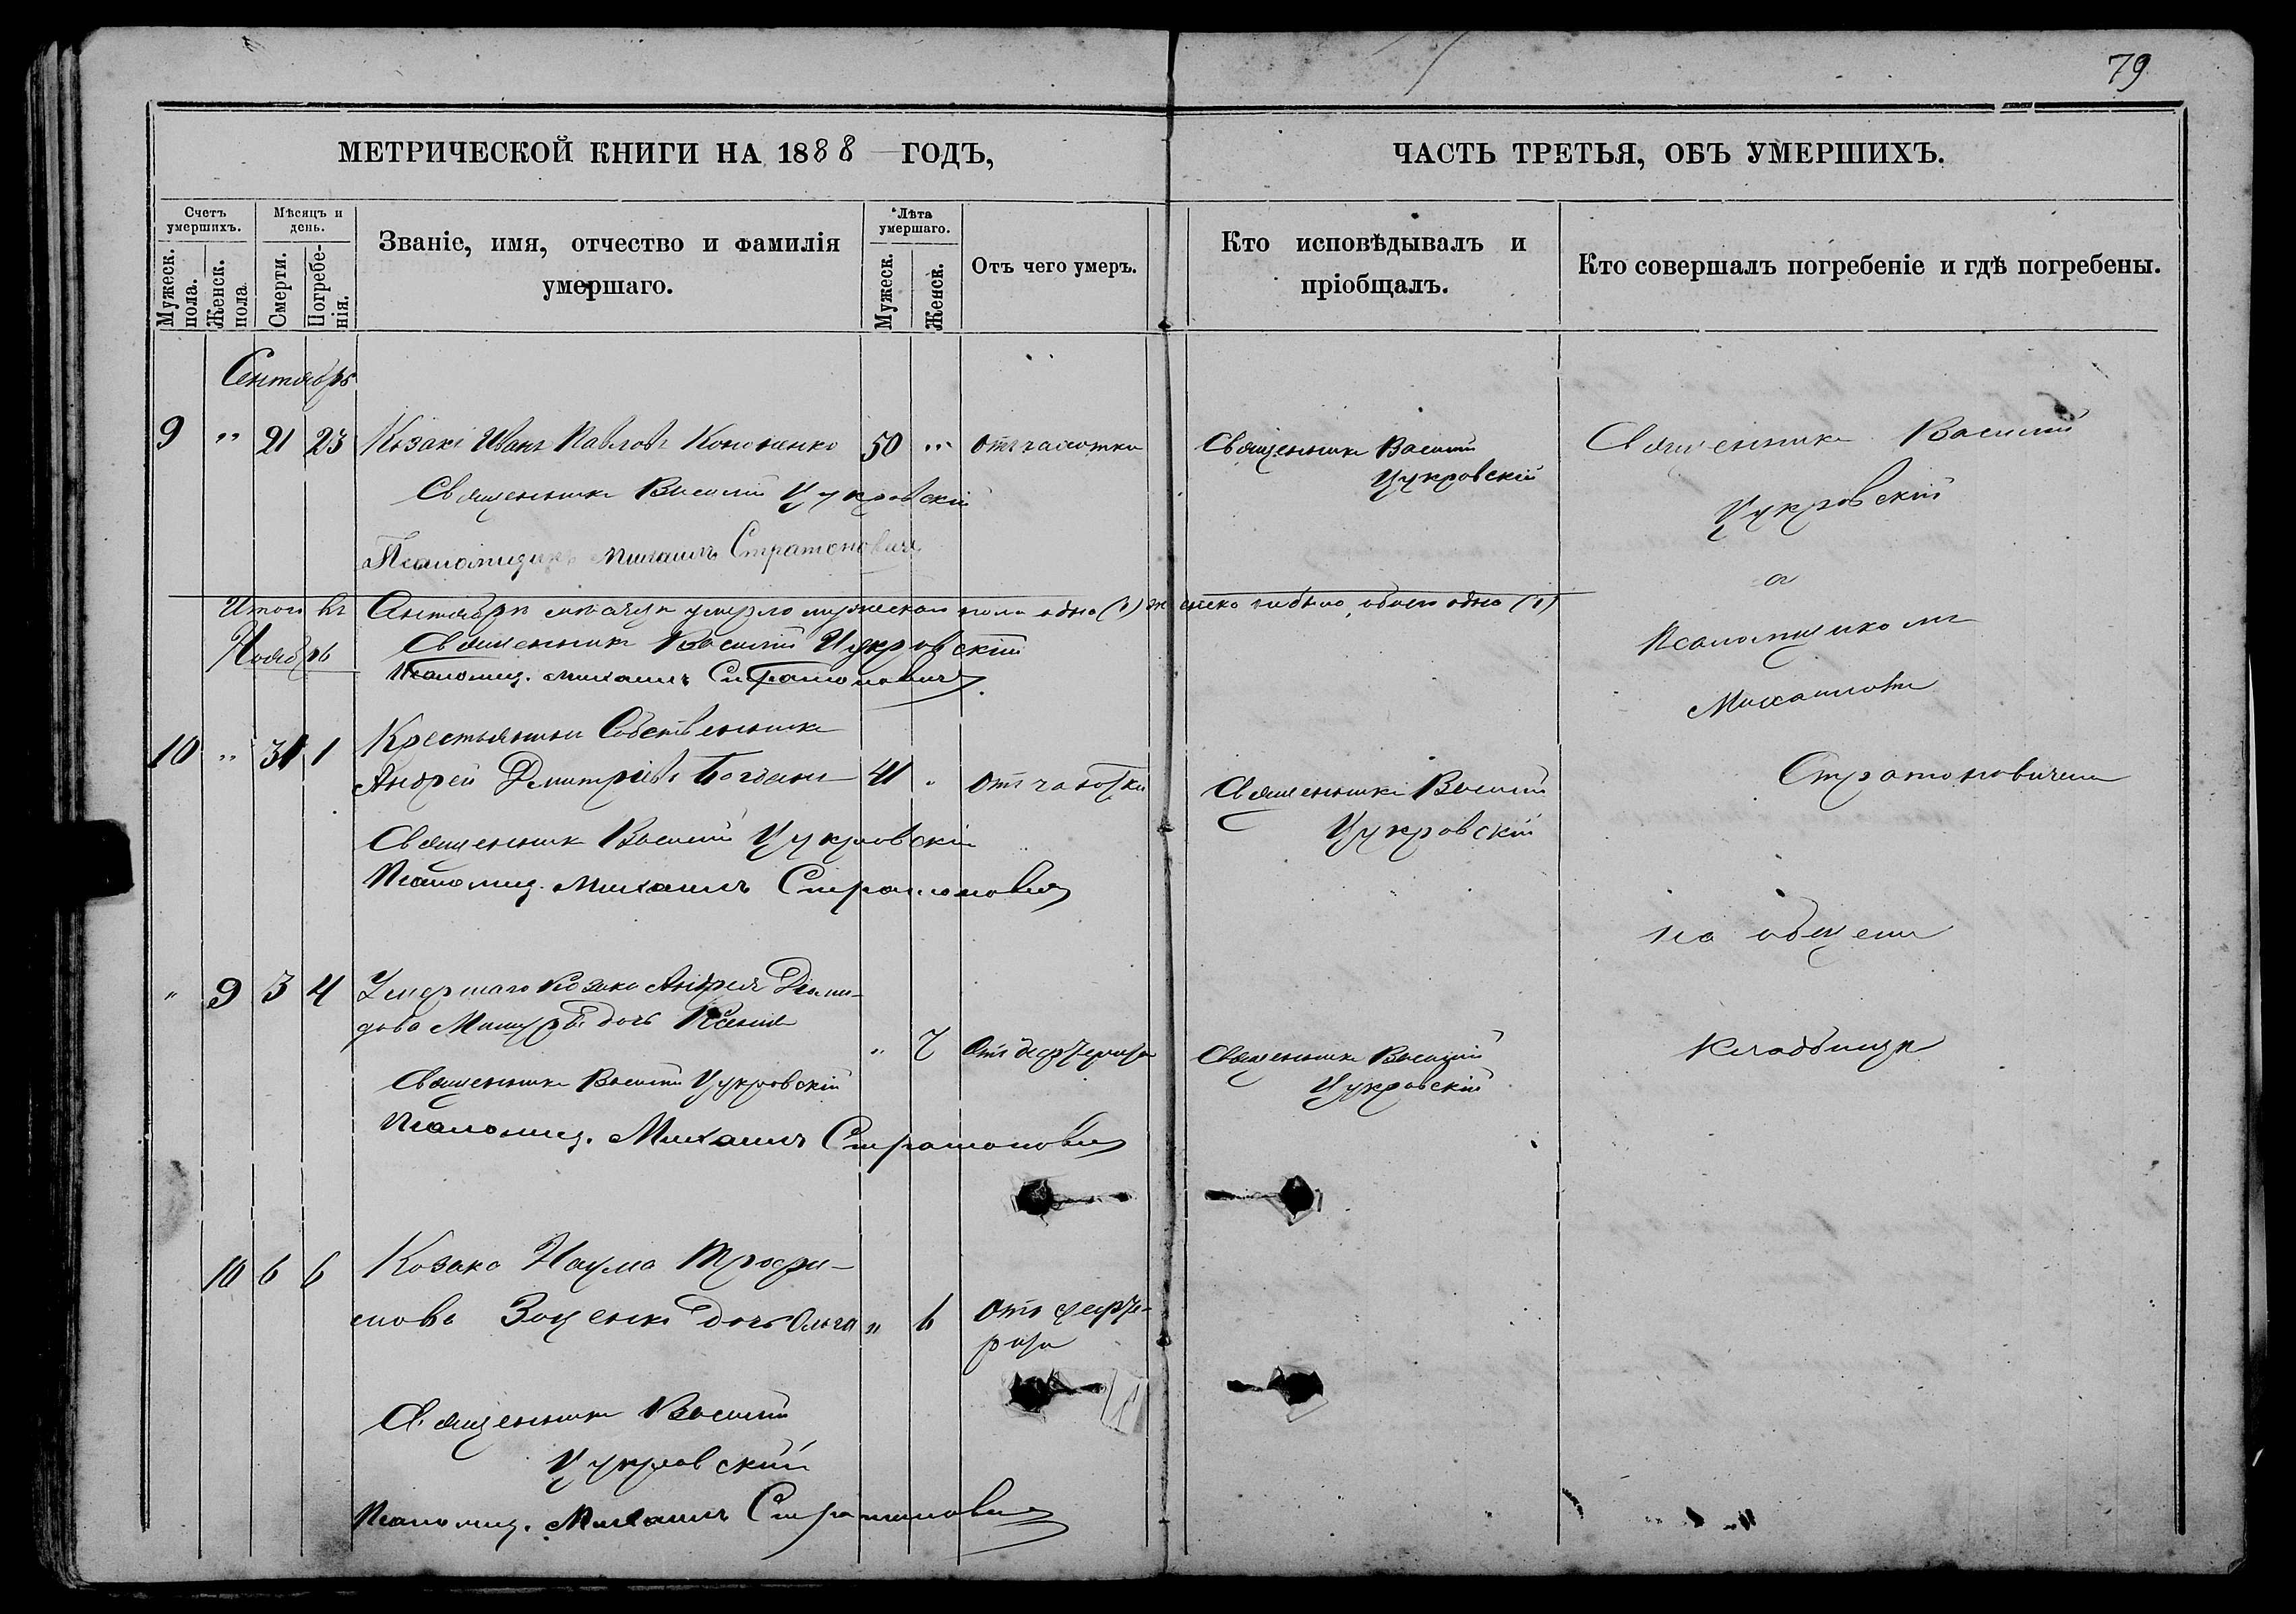 79
МЕТРИЧЕСКОЙ КНИГИ НА 1888 ГОДЪ,
ЧАСТЬ ТРЕТЬЯ, ОБЪ УМЕРШИХЪ.
Счетъ умершихъ.
Мужеск. пола.
Женск. пола
Мѣсяцъ и день.
Смерти.
Погребе-
нія.
Званіе, имя, отчество и фамилія
умершаго.
Лѣта умершаго.
Мужеск.
Женск.
Отъ чего умеръ.
Кто исповѣдывалъ и
пріобщалъ.
Кто совершалъ погребеніе и гдѣ погребены.
Сентябрь
9 " 21 23 Козакъ Иванъ Павловъ Кононенко 50 " отъ чахотки
Священникъ Василій Цукровскій
Псаломщикъ Михаилъ Стратоновичъ
Священникъ Василій
Цукровскій
Итого въ Сентябрѣ мѣсяцѣ умерло мужеского пола одно (1) женско не было, обоего одно (1)
Священникъ Василій Цукровскій
Псаломщ. Михаилъ Стратоновичъ
Ноябрь
10 " 31 1 Крестьянинъ Собственникъ
Андрей Дмитріевъ Богданъ 41 " отъ чахотки
Священникъ Василій Цукровскій
Псаломщ. Михаилъ Стратоновичъ
Священникъ Василій
Цукровскій
" 9 3 4 Умершаго Козака Андрея Деми-
дова дочь Ксенія
" 7 отъ
Священникъ Василій Цукровскій
Псаломщ. Михаилъ Стратоновичъ
Священникъ Василій
Цукровскій
10 6 6 Козака Наума Трофи-
мова дочь Ольга " 6 отъ
Священникъ Василій
Цукровскій
Псаломщ. Михаилъ Стратоновичъ
Священникъ Василій
Цукровскій
с
Псаломщикомъ
Михаиломъ
Стратоновичемъ
на общемъ
Кладбищѣ